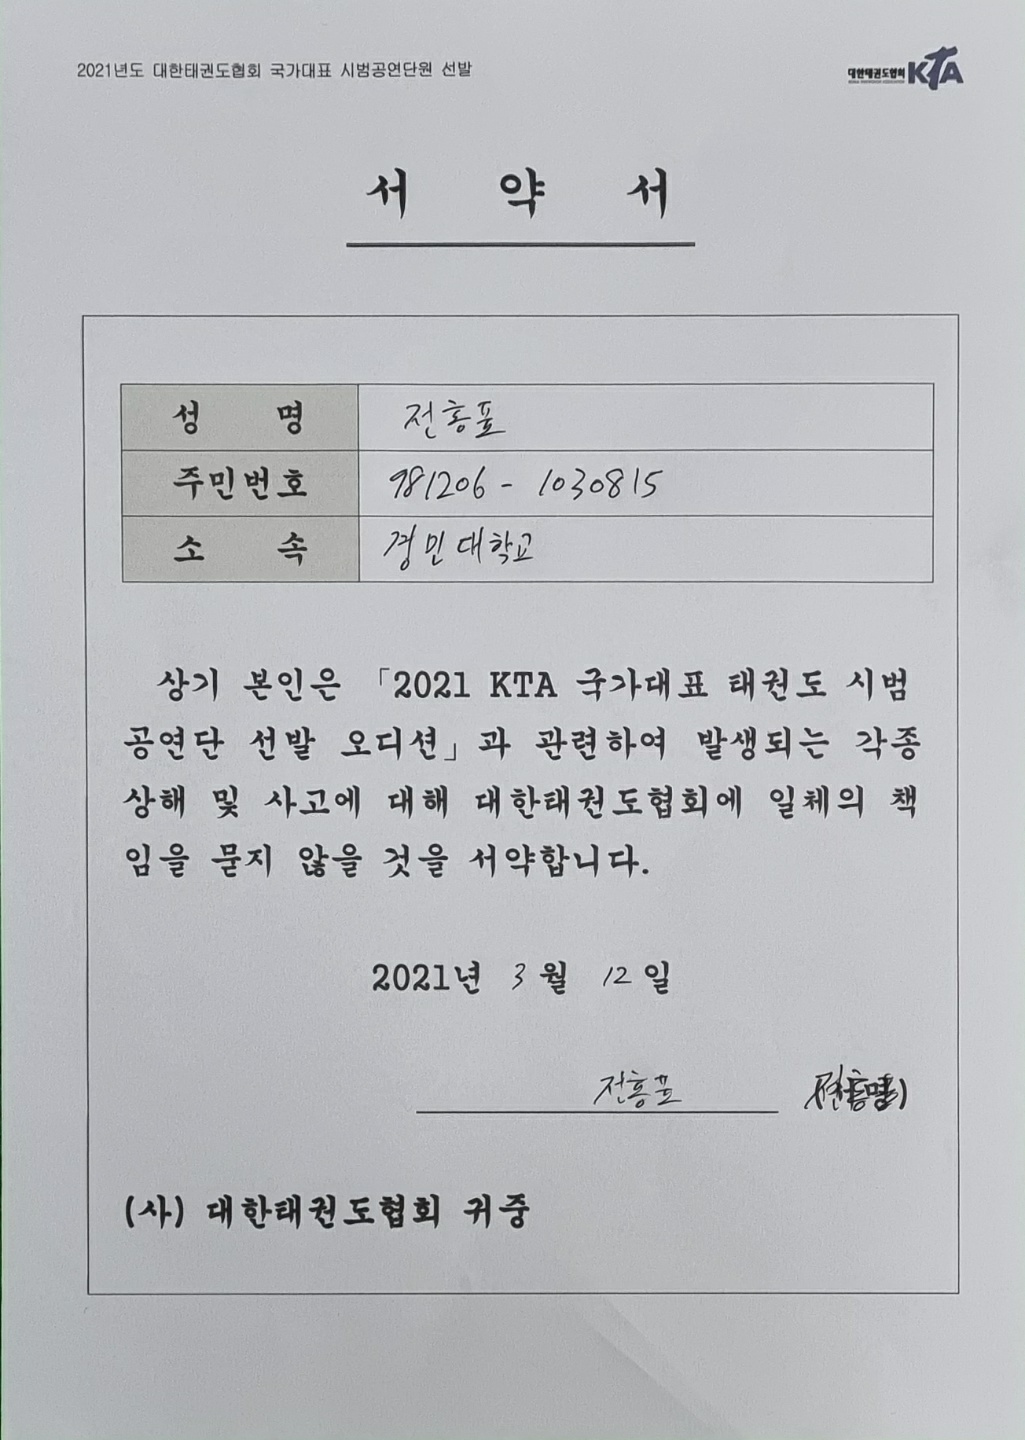 2021년도 대한태권도협회 국가대표 시범공연단원 선발
대한태권도협회 KTA
서 약 서
성 명 전홍표
주민번호 981206 - 1030815
소 속 경민대학교
상기 본인은 「2021 KTA 국가대표 태권도 시범
공연단 선발 오디션」과 관련하여 발생되는 각종
상해 및 사고에 대해 대한태권도협회에 일체의 책
임을 묻지 않을 것을 서약합니다.
2021년 3 월 12 일
전홍표
(사) 대한태권도협회 귀중